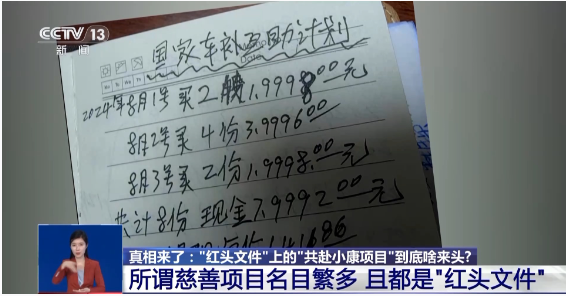 CCTV 13
新闻
国家车补互助计划
2024年8月1号买2 1.9998.00元
8月2号买4份3.9996.00
8月3号买2份1.9998.00元
共计8份 现金7.9992.00元
真相来了："红头文件"上的"共赴小康项目"到底啥来头?
所谓慈善项目名目繁多 且都是"红头文件"